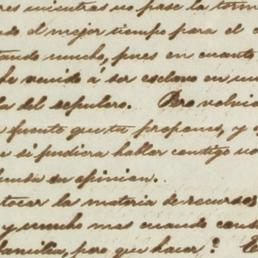 res mientras no pase la torm
do el mejor tiempo para el
tando mucho, pues en cuanto
he venido á ser esclavo en un
a del sepulcro. Pero volvi
fuente que tu propones, y
si pudiera hablar contigo
en opinion.
tocar la materia de recursos
y mucho mas cuando cons
familia, pero que hacer?